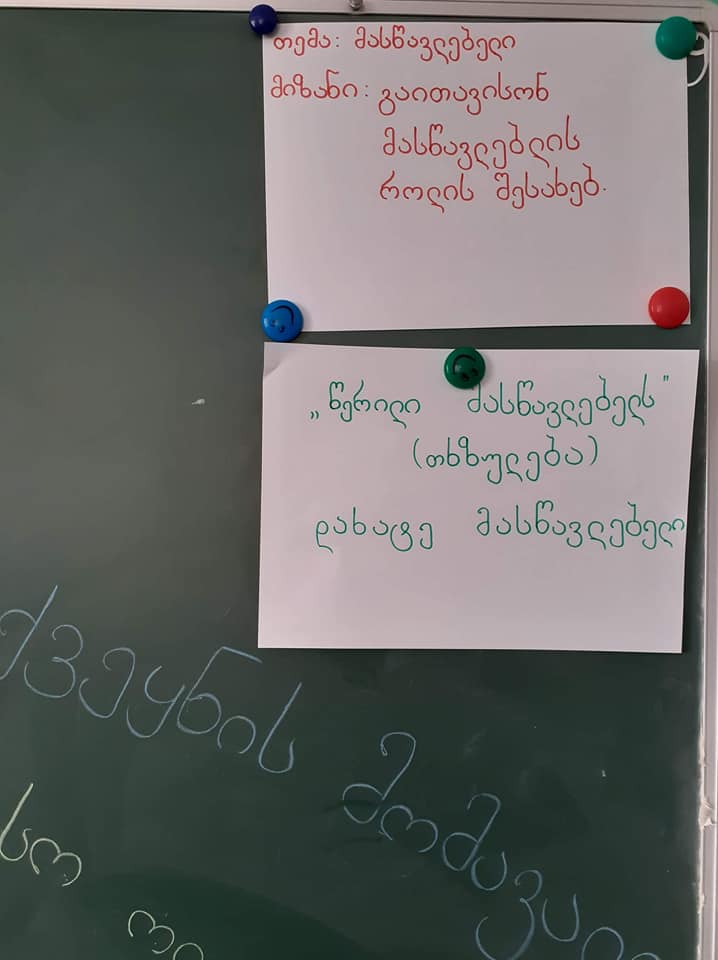 თემა: მასწავლებელი
მიზანი: გაითავისონ
მასწავლებლის
როლის შესახებ.
„წერილი მასწავლებელს"
(თხზულება)
დახატე მასწავლებელი
ქვეყნის